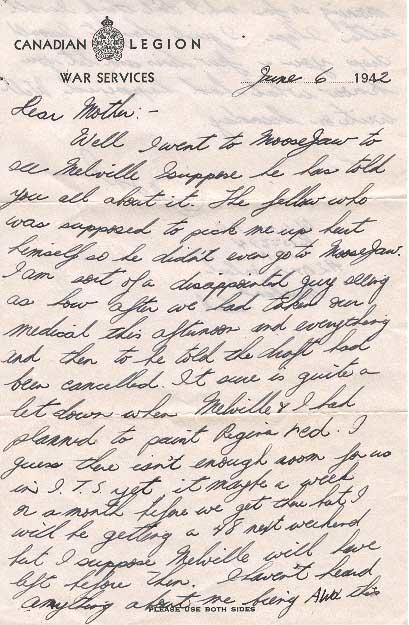 CANADIAN LEGION
WAR SERVICES
June 6 1942
Dear Mother:-
Well I went to MooseJaw to
see Melville I suppose he has told
you all about it. The fellow who
was supposed to pick me up hurt
himself so he didn't even go to MooseJaw.
I am sort of a disappointed guy seeing
as how after we had taken our
medical this afternoon and everything
and then to be told the draft had
been cancelled. It sure is quite a
let down when Melville & I had
planned to paint Regina red. I
guess there isn't enough room for us
in I.T.S. yet it maybe a week
or a month before we get there but I
will be getting a 48 next weekend
but I suppose Melville will have
left before then. I haven't heard
anything about me being AWL this
PLEASE USE BOTH SIDES